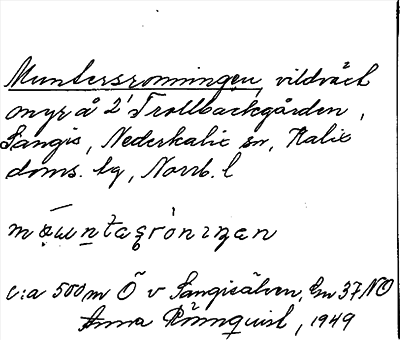 Muntersronningen, vildväxt
onyr å 2' Trollbackgården,
Sangis, Nederkalix sn, Kalix
doms. lg, Norrb. l
c:a 500 m Ö v Sangisälven, Gn 37 NO
Anna Rönnquist, 1949